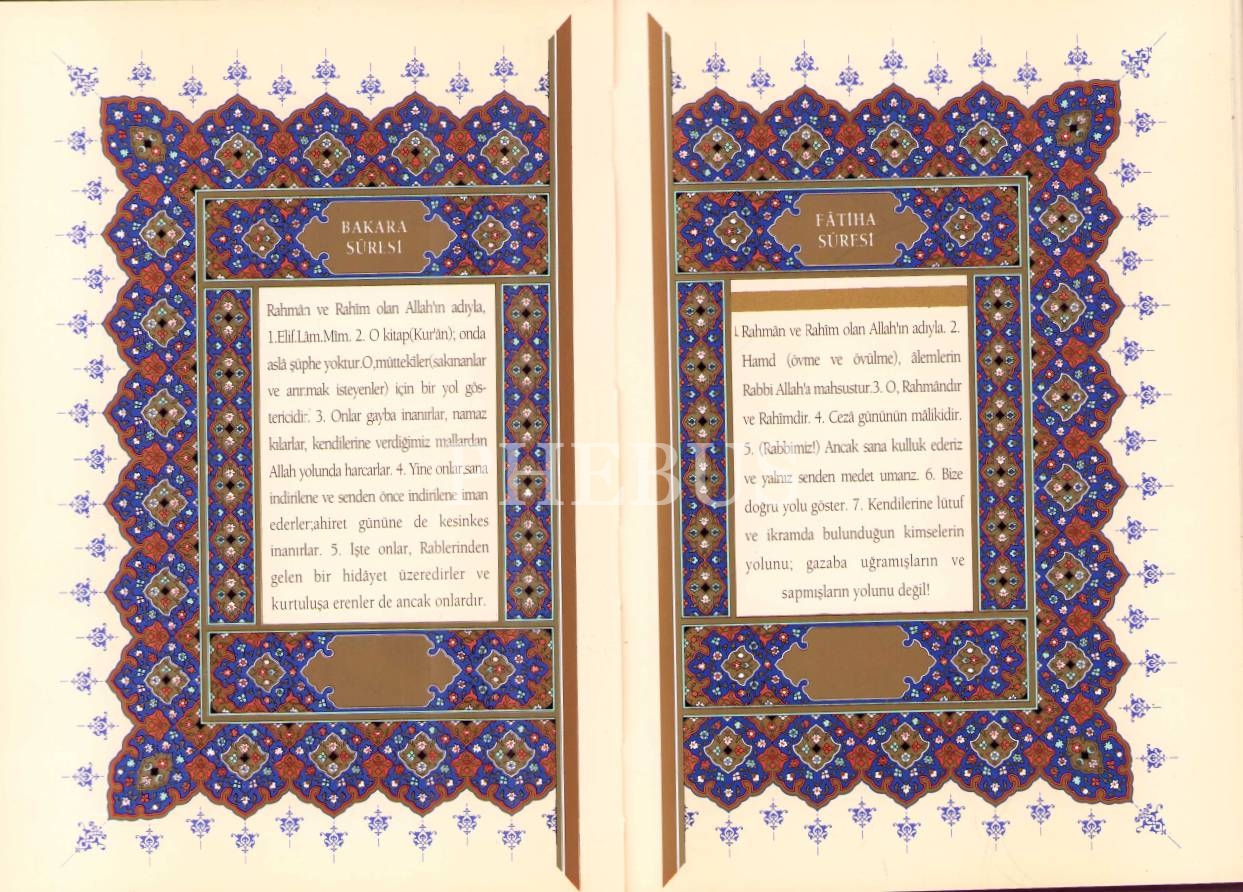 BAKARA
SÛRESİ
Rahmân ve Rahîm olan Allah'ın adıyla,
1.Elif.Lâm.Mîm. 2. O kitap(Kur'ân); onda
aslâ şüphe yoktur.O,müttekîler(sakınanlar
ve arınmak isteyenler) için bir yol gös-
tericidir. 3. Onlar gayba inanırlar, namaz
kılarlar, kendilerine verdiğimiz mallardan
Allah yolunda harcarlar. 4. Yine onlar,sana
indirilene ve senden önce indirilene iman
ederler;ahiret gününe de kesinkes
inanırlar. 5. İşte onlar, Rablerinden
gelen bir hidâyet üzeredirler ve
kurtuluşa erenler de ancak onlardır.
FÂTİHA
SÛRESİ
1. Rahmân ve Rahîm olan Allah'ın adıyla. 2.
Hamd (övme ve övülme), âlemlerin
Rabbi Allah'a mahsustur.3. O, Rahmândır
ve Rahîmdir. 4. Cezâ gününün mâlikidir.
5. (Rabbimiz!) Ancak sana kulluk ederiz
ve yalnız senden medet umarız. 6. Bize
doğru yolu göster. 7. Kendilerine lütuf
ve ikramda bulunduğun kimselerin
yolunu; gazaba uğramışların ve
sapmışların yolunu değil!
PHEBUS